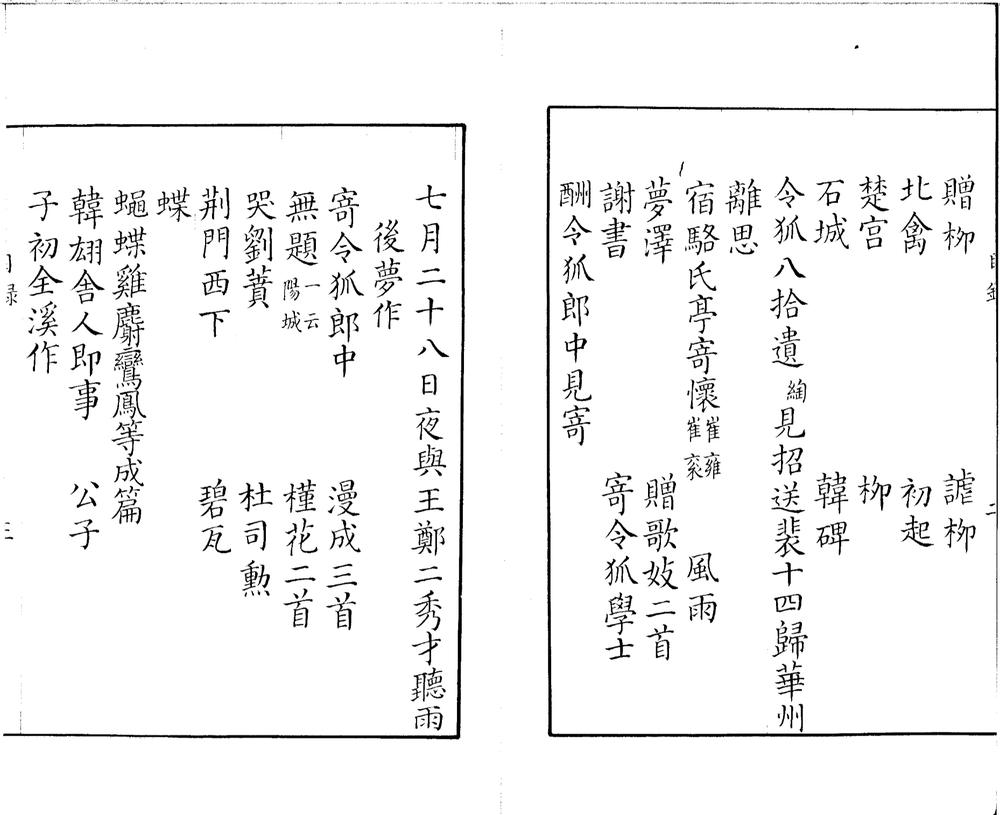 贈柳　謔柳
北禽　初起
楚宮　柳
石城　韓碑
令狐八拾遺綯見招送裴十四歸華州
離思
宿駱氏亭寄懷崔雍崔衮　風雨
夢澤　贈歌妓二首
謝書　寄令狐學士
酬令狐郎中見寄
七月二十八日夜與王鄭二秀才聽雨
後夢作
寄令狐郎中　漫成三首
無題一云陽城　槿花二首
哭劉蕡　杜司勲
荆門西下　碧瓦
蝶
蠅蝶雞麝鸞鳳等成篇
韓翃舍人即事　公子
子初全溪作